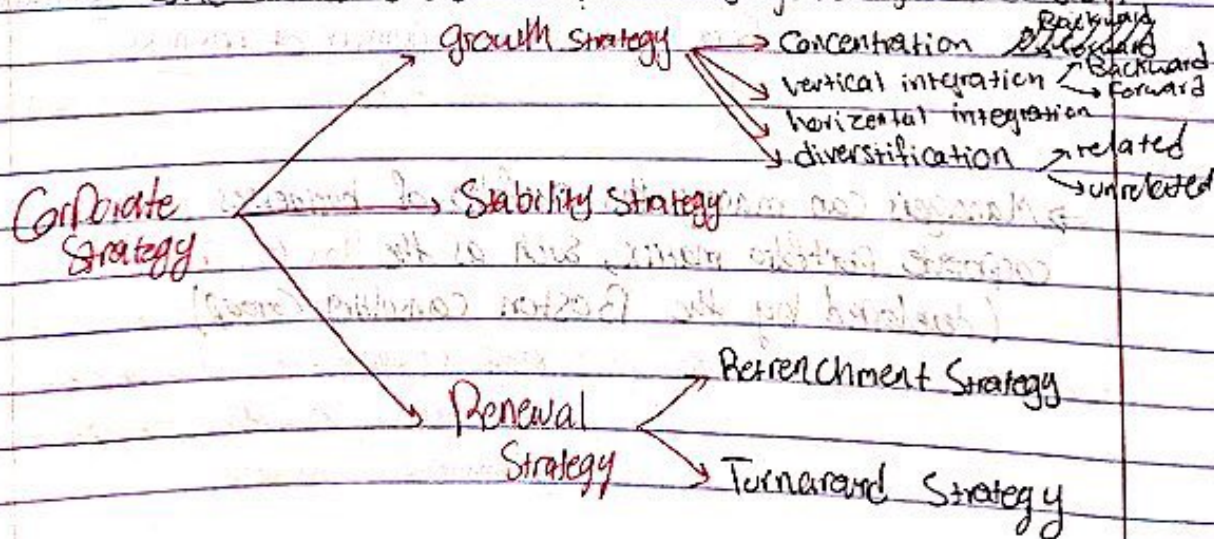 growth strategy
Concentration
vertical integration
Backward
Forward
horizental integration
diverstification
related
unrelated
Corporate
Strategy
Stability Strategy
Renewal
Strategy
Retrenchment Strategy
Turnarard Strategy